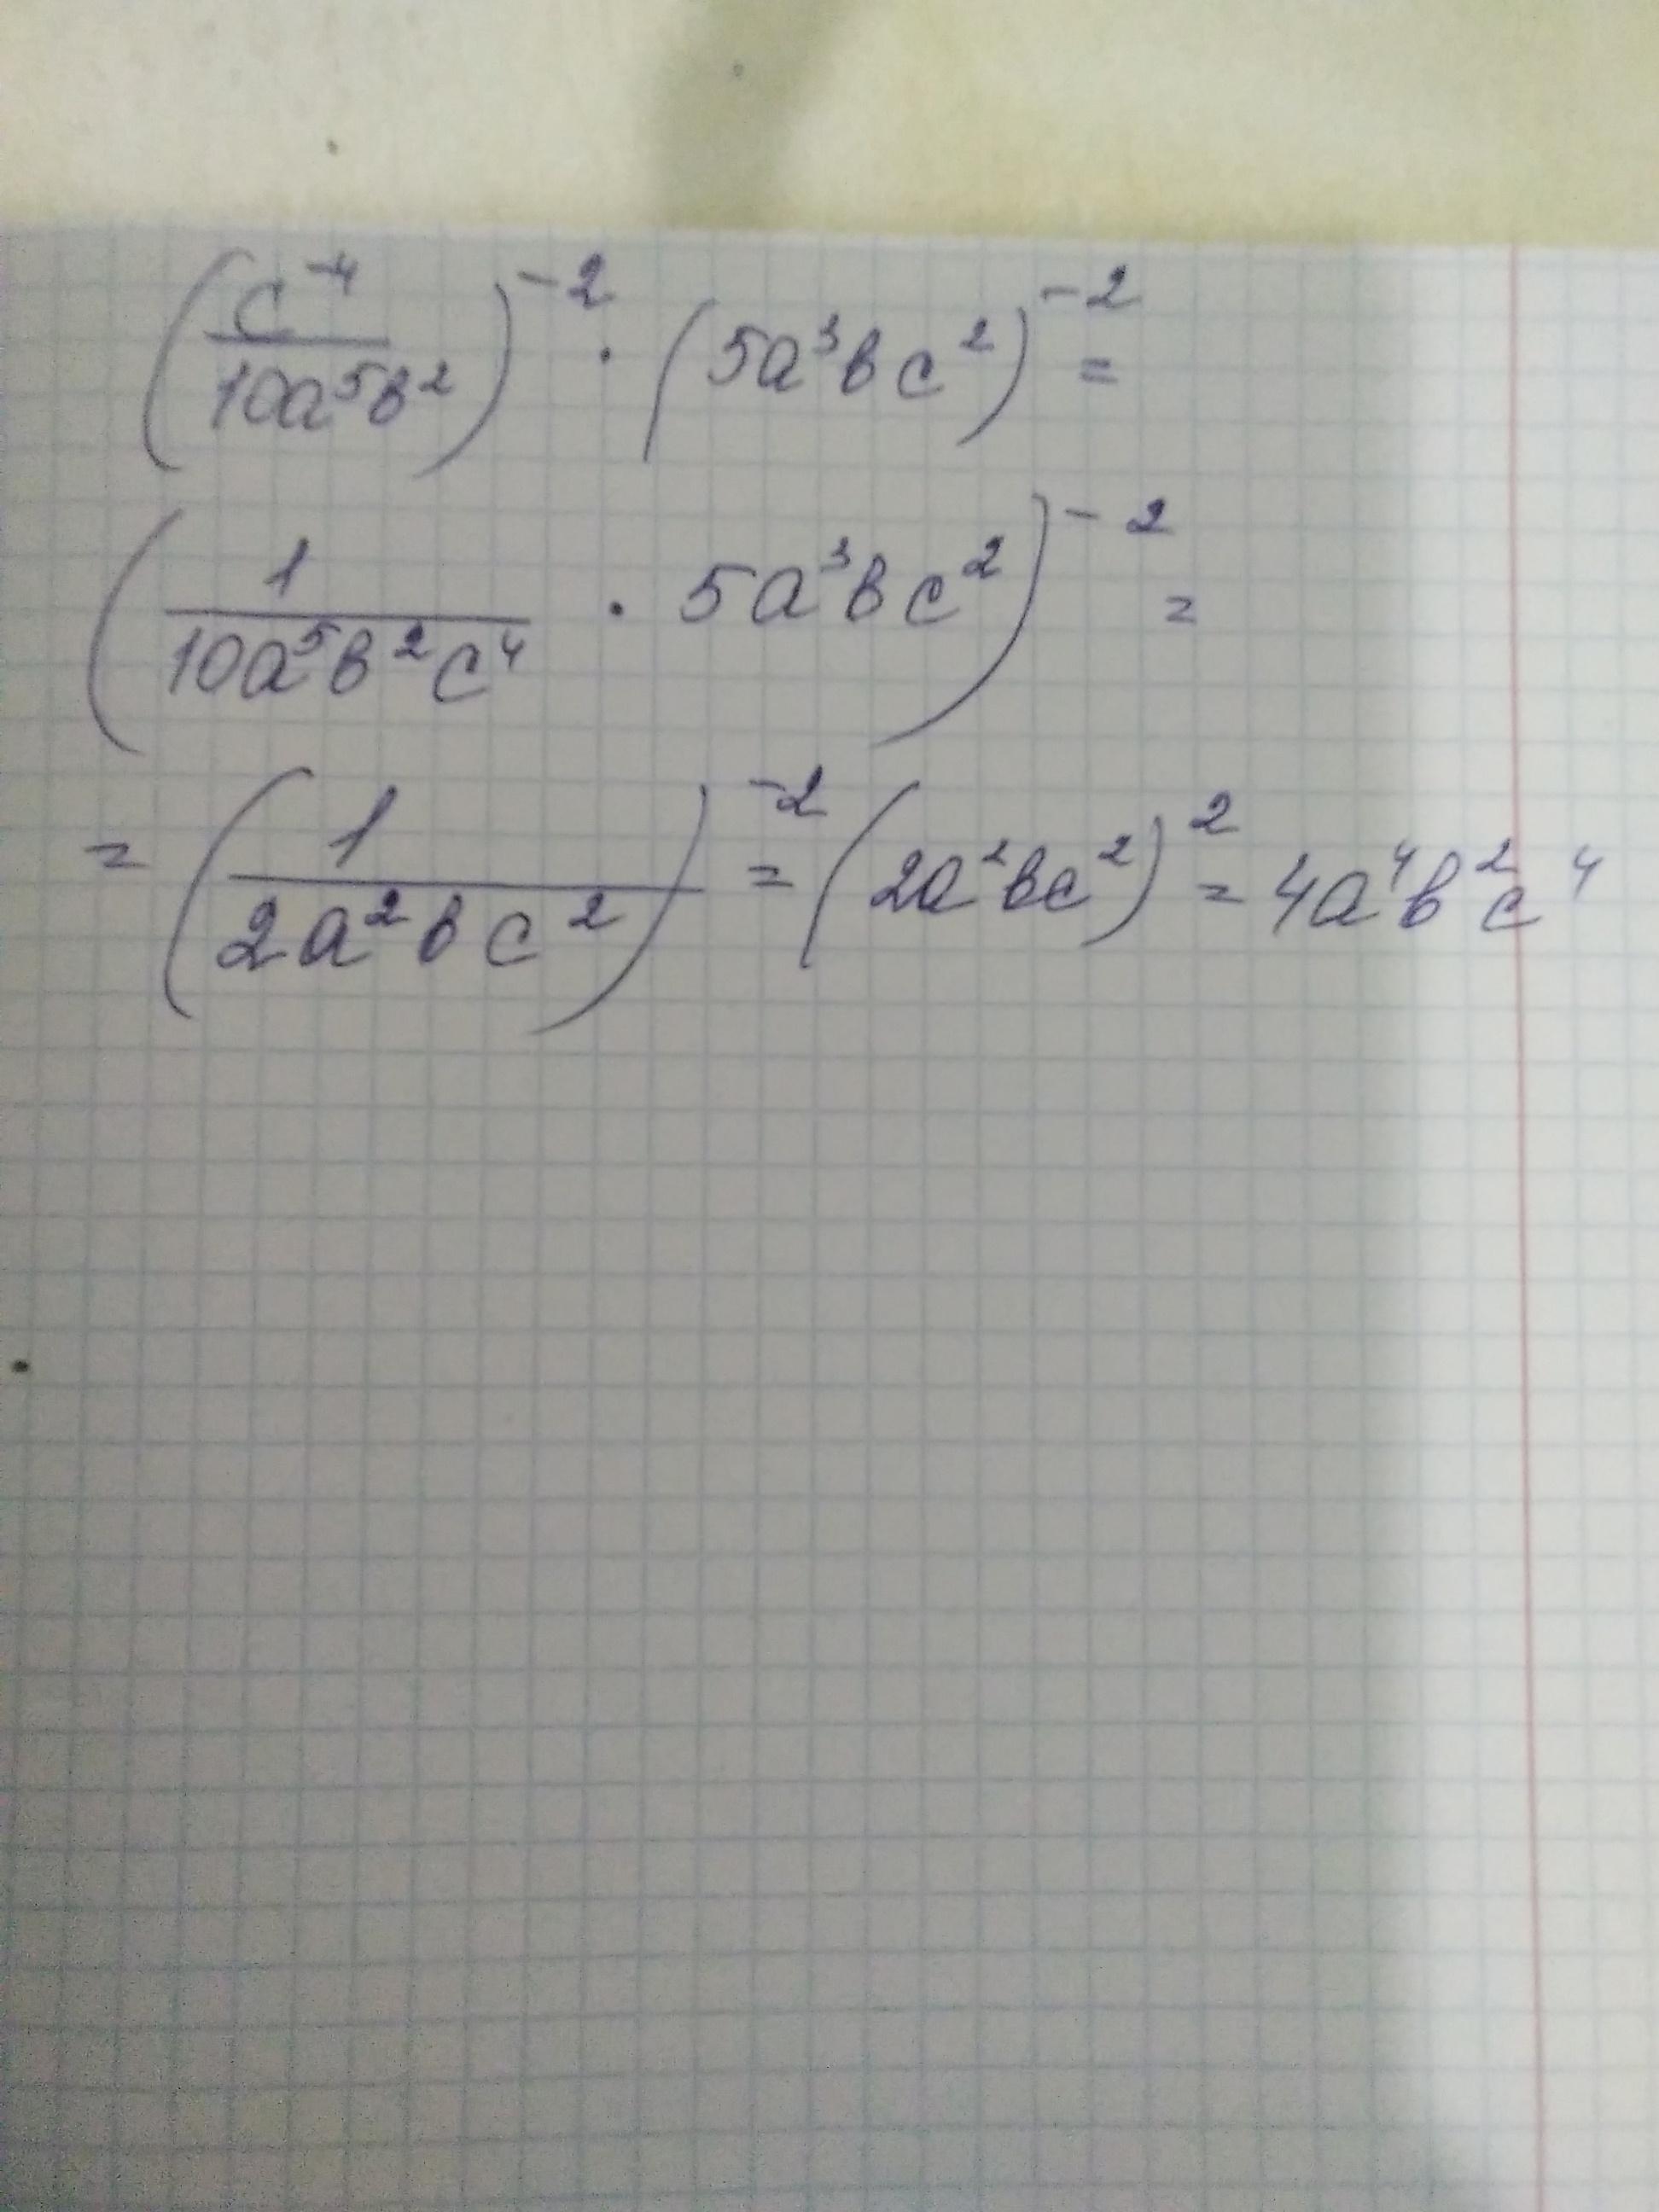 (c⁻⁴/10a⁵b²)⁻² · (5a³bc²)⁻² =
(1/10a⁵b²c⁴ · 5a³bc²)⁻² =
= (1/2a²bc²)⁻² = (2a²bc²)² = 4a⁴b²c⁴